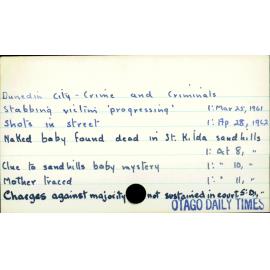 Dunedin City - Crime and Criminals
Stabbing victim 'progressing' 1: Mar 25, 1961
Shots in street 1: Ap 28, 1962
Naked baby found dead in St. Kilda sandhills
1: Oct 8, "
Clue to sandhills baby mystery 1: " 10, "
Mother traced 1: " 11, "
Charges against majority not sustained in court 5: D1, "
OTAGO DAILY TIMES